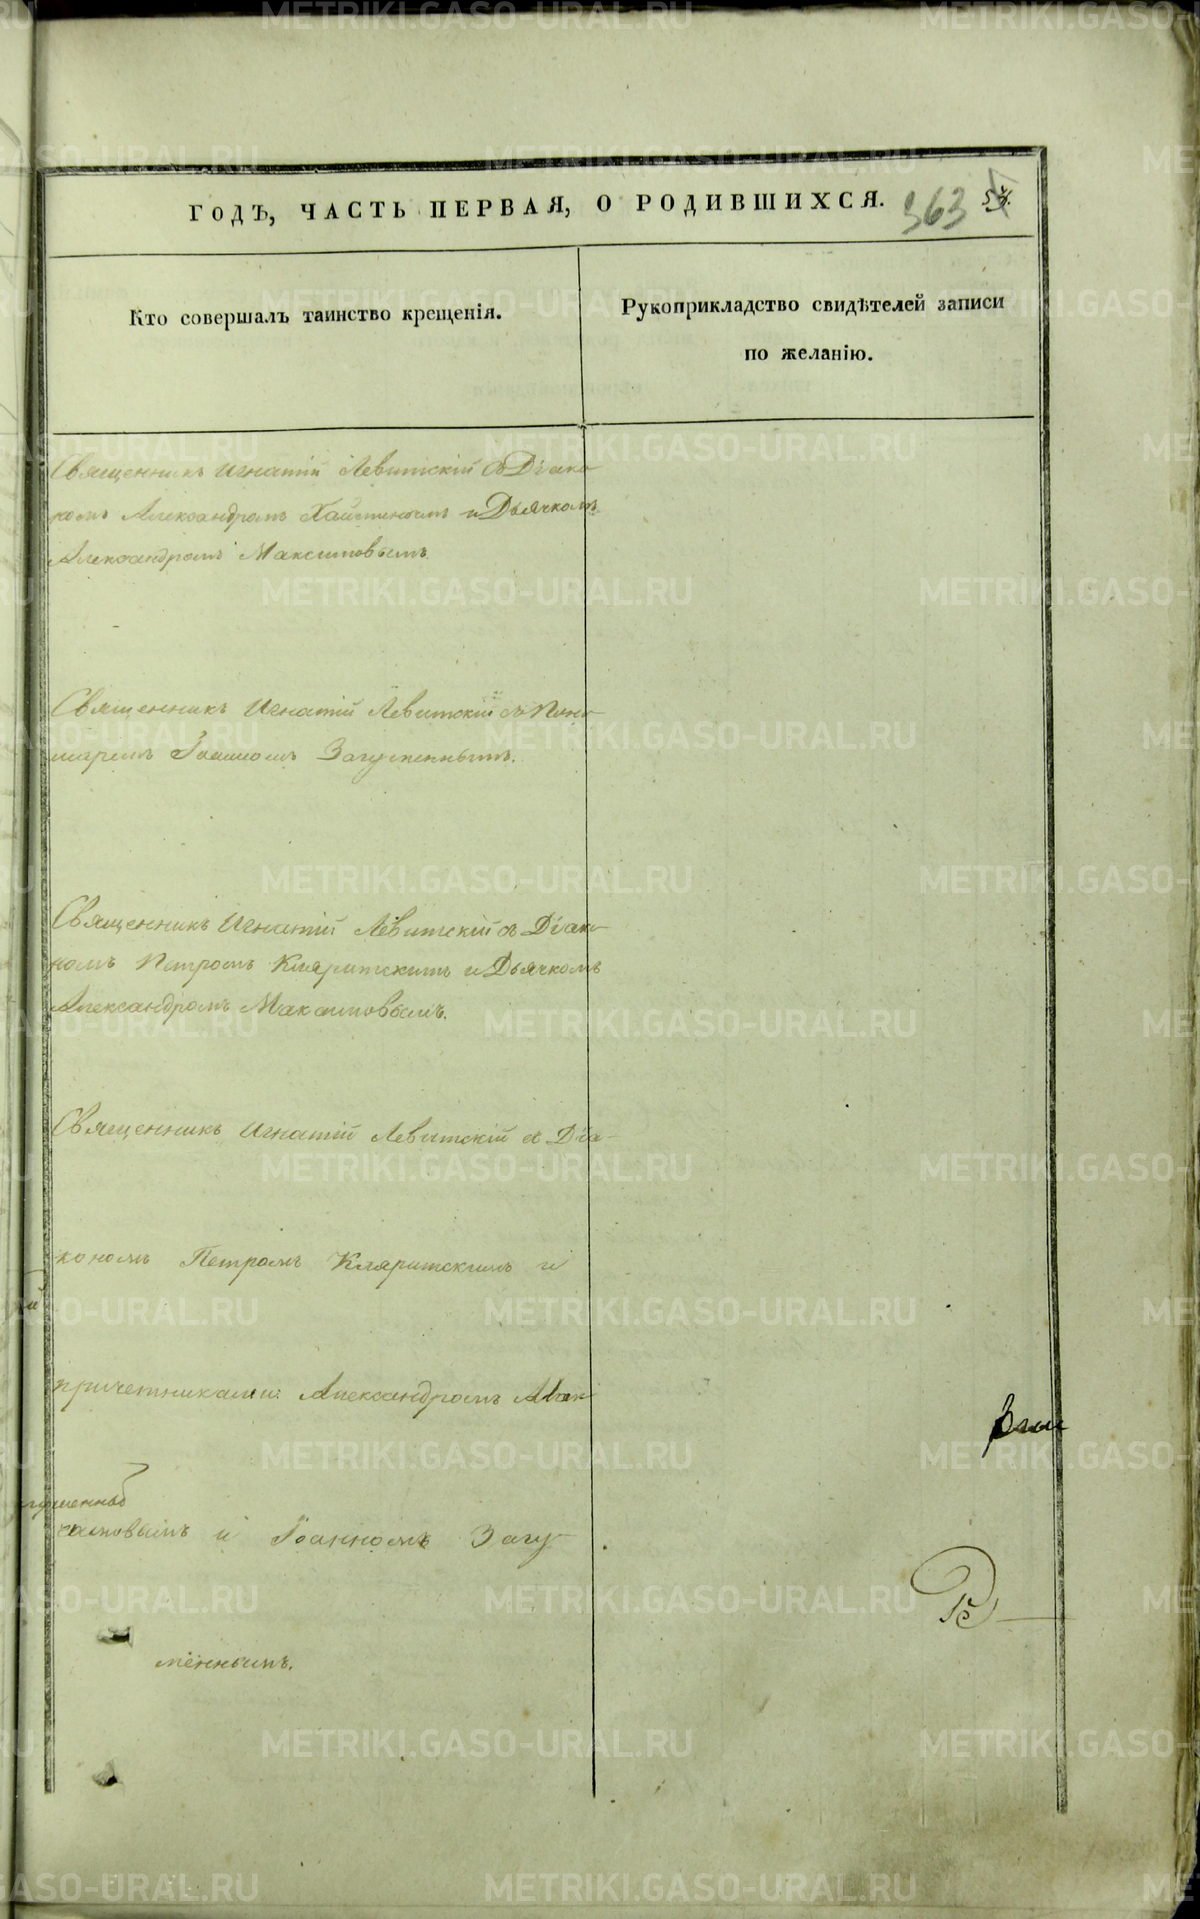 ГОДЪ, ЧАСТЬ ПЕРВАЯ, О РОДИВШИХСЯ. 363
Кто совершалъ таинство крещенія.
Рукоприкладство свидѣтелей записи
по желанію.
Священникъ Игнатій Левитскій съ Діако
номъ Александромъ и Дьячкомъ
Александромъ Максимовымъ.
Священникъ Игнатій Левитскій съ Поно-
маремъ Іоанномъ Загуменнымъ.
Священникъ Игнатій Левитскій съ Діако-
номъ Петромъ Кляритскимъ и Дьячкомъ
Александромъ Максимовымъ.
Священникъ Игнатій Левитскій съ Діа-
кономъ Петромъ Кляритскимъ и
причетниками: Александромъ Мак
симовымъ и Іоанномъ Загу-
меннымъ.
METRIKI.GASO-URAL.RU